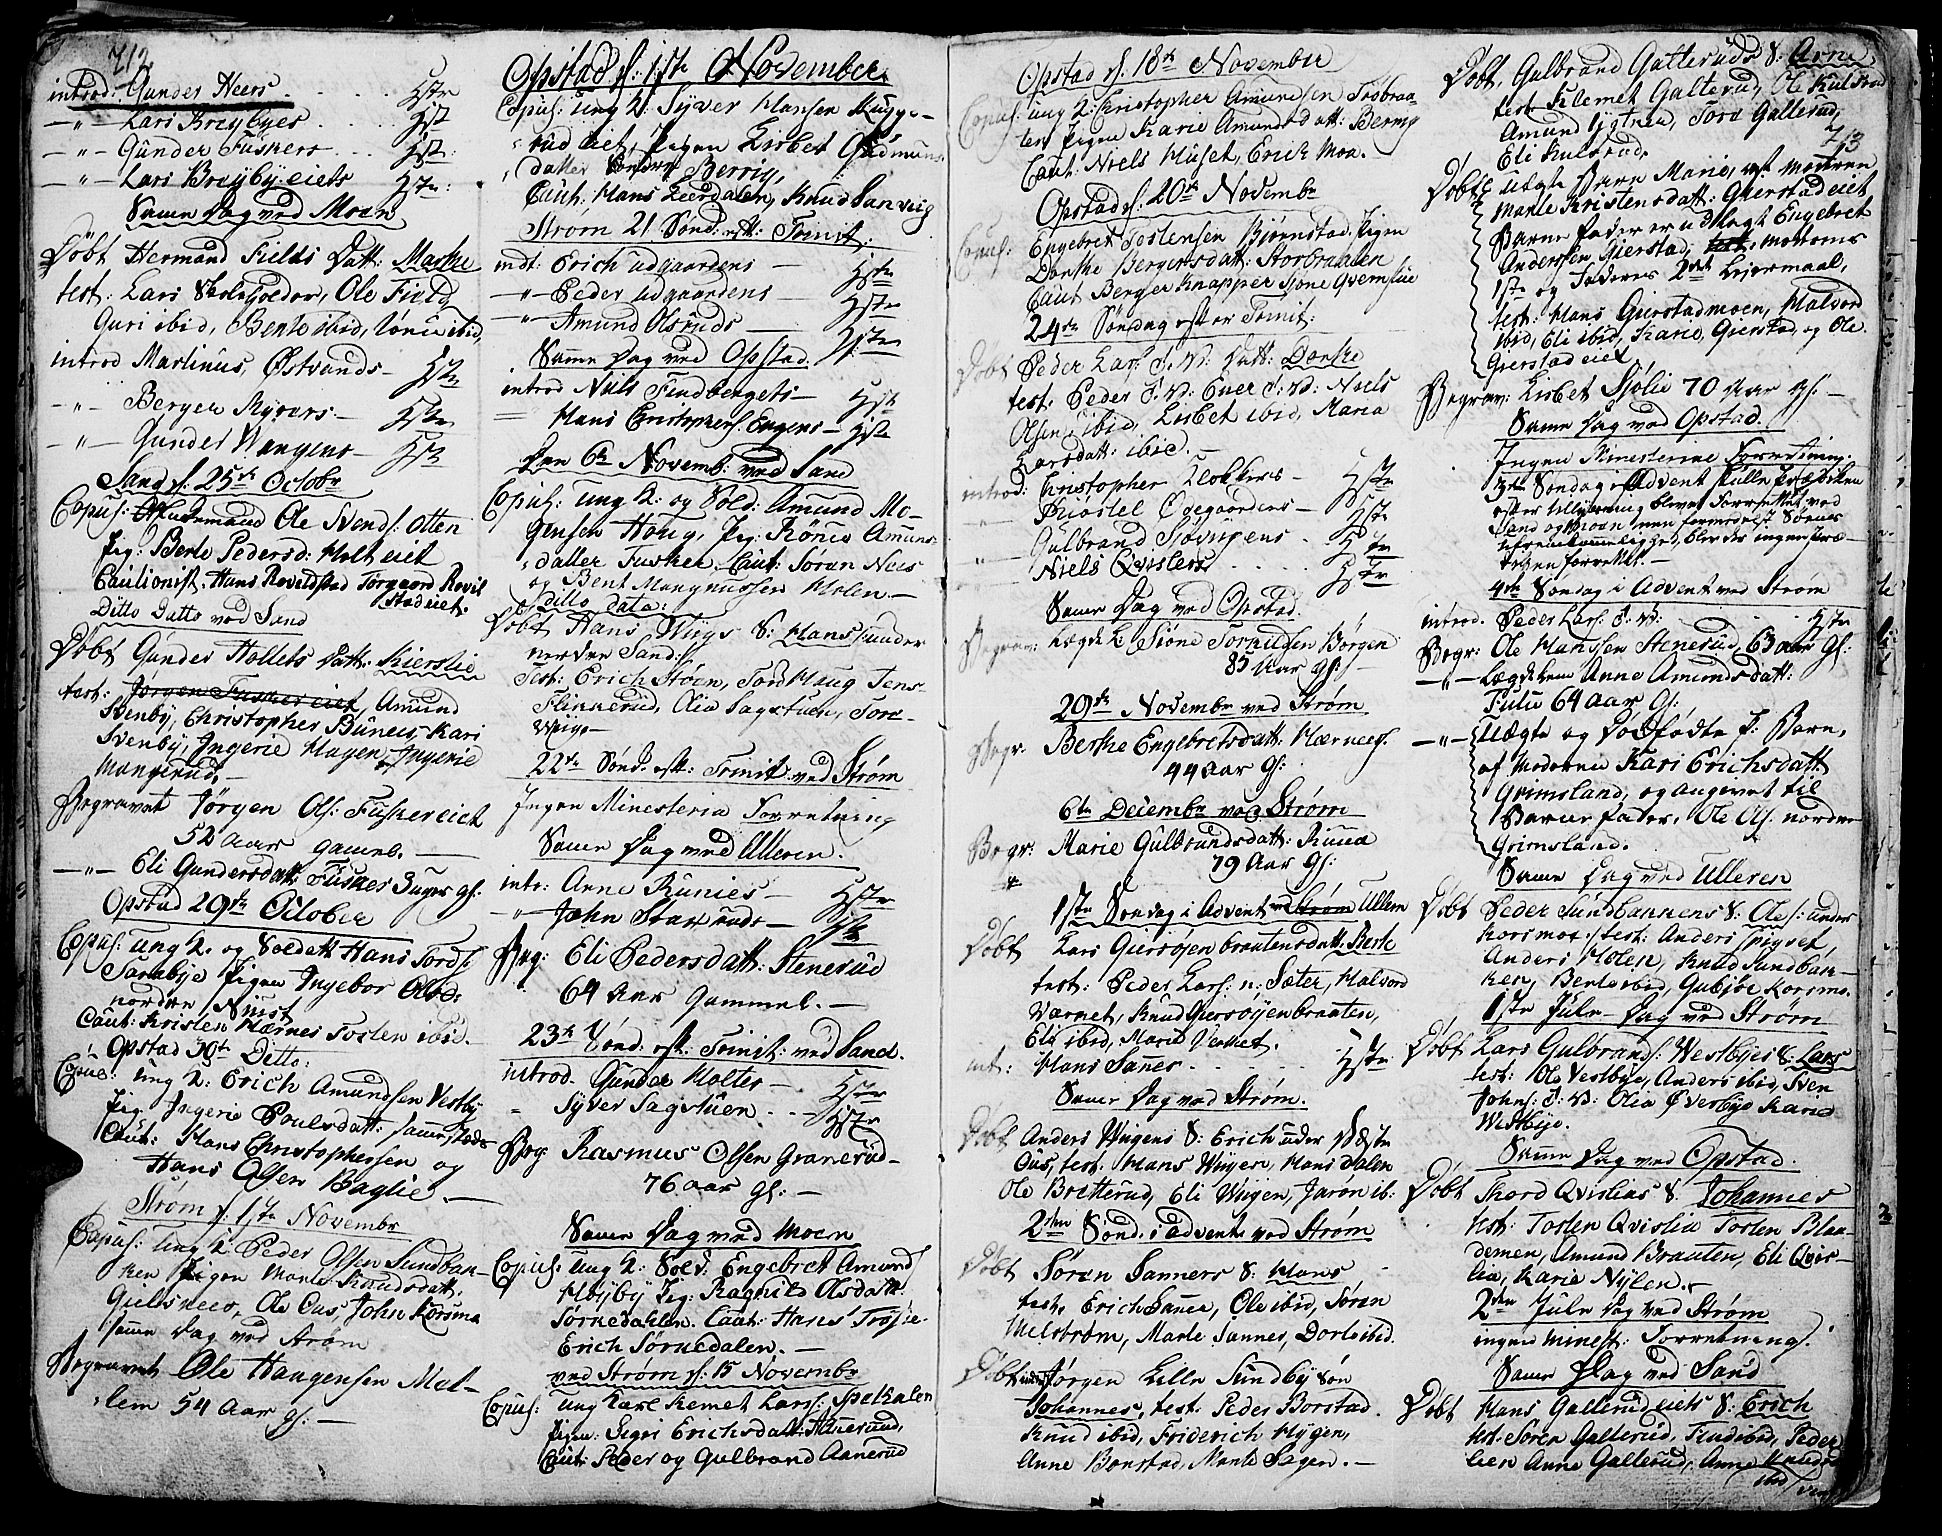 712
introd: Gunder Neers . . . . Hstr
—"— Lars Breÿbÿes . . . . Hst
—"— Gunder Fuskers . . . Hst:
—"— Lars Breÿbÿ eiets Hstr:
Samme Dag ved Moen
Døbt Hermand Fields Datt: Marthe
test: Lars, Ole Field
Guri ibid, Bente ibid, Tønie ibid,
introd Martinus, Østvands — Hstr
—"— Berger Myhrers — Hstr
—"— Gunder Wangens — Hstr
Sand d: 25de Octobr
Copul: Ole Svends: Otten
Pig: Berte Pedersd: Holt eiet
Cautionist. Hans Rovildstad Torgaard Rovil
stad eiet.
Ditto Datto ved Sand
Døbt Gunder Hollets Datt: Kierstie
test: Jørgen Fusker eiet, Amund
Svenby, Christopher Bunes, Kari
Svenby, Ingerie Hagen, Ingerie
Mangerud, —
Begravet Jørgen Ols: Fusker eiet
52 aar gamel. —
—"— Eli Gundersdatt: Fusker 3 uger gl:
Opstad 29de October
Copul: ung k. og Soldatt Hans Tords:
Sarabye Pigen Ingebor Olsd:
nordre Nust
Caut: Kristen Hernes Tosten ibid.
Opstad 30te Ditto:
Copul: ung k: Erich Amundsen Vestby
Pig Ingerie Poulsdatt: sammestæds
Caut: Hans Christophersen og
Hans Olsen Baglie. —
Strøm d: 1ste Novembr
Copul: ung k Peder Olsen Sundban-
ken Pigen Marte Knudsdatt:
Gulbsness, Ole Aas, John Korsmo
samme Dag ved Strøm
Begravet Ole Haagensen Mel-
lem 54 aar gl: —
Opstad d: 1ste November.
Copul: ung k: Syver Hansen Rugge-
rud eiet, Pigen Lisbet Gudmuns
datter Berrig,
Caut: Hans Leerdalen, Knud Sanvig
Strøm 21 Sønd: eft: Trinit:
indt: Erich udgaardens — Hstr
—"— Peder udgaardens — Hstr
—"— Amund Olsruds — Hstr
Samme Dag ved Opstad.
introd Niels Findbergets — Hstr
— Hans Christophers: Engens — Hstr
Den 6te Novemb: ved Sand
Copul: ung k: og Sold: Amund Mo-
gensen Haug, Pig: Rønie Amuns
datter Fusker. Caut: Søren Nees
og Bent Mangnussen Holen. —
Ditto dato:
Døbt Hans Wiigs S: Hans under
nerder Sand:
Test: Erich Støen, Tord Haug Jens
Flinnerud, Olia Sagstuen, Tore
Wiig. —
22de Sønd. eft: Trinit: ved Strøm
Ingen Ministeria Forretning
Samme Dag ved Ulleren.
intr: Arne Runies — Hstr
—"— John Starruds — Hstr
Beg: Eli Pedersdatt: Stenerud
64 Aar Gammel. —
23de Sønd. eft. Trinit: ved Sand.
introd. Gunder Holter — Hstr
" Syver Sagstuen . . — Hstr
Beg: Rasmus Olsen Granerud —
76 aar gl: —
Samme Dag ved Moen
Copul: ung k: Sold: Engebret Amund
Høyby Pig: Ragnild Olsdatt:
Sørnedahlen. Caut: Hans Trøsie
Erich Sørnedalen. —
ved Strøm d: 15 Novembr
Copul: ung Karl Kemet Lars: Spetalen
Pigen: Sigri Erichsdatt: Aanerud,
Caut: Peder og Gulbrand Aanerud
Opstad d. 18de November
Copul: ung k: Christopher Amundsen Fosbraa-
ten Pigen Karie Amundsdatt: Berrig
Caut: Niels Huset, Erich Moe. —
Opstad d: 20de Novembr
Copul: Engebret Tostensen Biørnstad. Pigen
Dorthe Bergersdatt: Storbraaten
Caut Berger Knapper Sione Qvernslie
24de Søndag efter Trinit:
Døbt Peder Lars: S. V: Datt: Dorthe
test. Peder S. V: Even S: V: Niels
Olsen ibid, Lisbet ibid, Maria
Larsdatt: ibid. —
introd: Christopher Klokkers — Hstr
" Ødegaardens — Hstr
" Gulbrand Siøvigens . Hstr
" Niels Qvislers . . . . Hstr
Samme Dag ved Opstad.
Begrav: Lægds L: Sione Torkildsen Børgen
85 Aar gl: —
29de Novembr ved Strøm
Begr. Berthe Engebretsdatt: Hærness.
44 Aar gl:
6te Decembr ved Strøm
Begr: Marie Gulbrandsdatt: Runea
79 Aar gl:
1ste Søndag i Advent ved Strøm Ulleren
Døbt Lars Giersøyenbraatens datt: Berthe
test: Peder Lars: n: Sæter, Halvord
Varnet, Knud Giersøyenbraaten,
Eli ibid, Marie Verket.
int: Hans Sanner . . . . Hstr
Samme Dag ved Strøm.
Døbt Anders Wigens S: Erich uder
Aas, test: Hans Wigen, Hans Dalen
Ole Britterud, Eli Wiigen, Jarøn ib:
2den Sønd. i Advent ved Strøm
Døbt Søren Sanners S: Hans
test. Erich Sanner, Ole ibid, Søren
Melstrøm, Marte Sanner, Dorte ibid.
Døbt Jørgen Lille Sundby Søn
Johannes, test: Peder Borstad.
Knud ibid, Friderich Hygen,
Anne Bonstad, Marte Sagen. —
Døbt, Gulbrand Gatteruds S: Arne
test Klemet Galterud, Ole Kulsrud
Amund, Tord Gallerud,
Eli Kulsrud.
713
Døbt uægte Barn Marie, af moderen
Marte Kristensdatt: Gierstad eiet
Barne fader er udlagt Engebret
Andersen Gierstad; Moderens
1ste og Faderens 2det Leiermaal,
test. Hans Gierstadmoen, Halvord
ibid, Eli ibid, Karie Gierstad, og Ole
Gierstad eiet
Begrav: Lisbet Siølie 70 Aar gl. —
Samme Dag ved Opstad.
Ingen Ministerine Forretning.
3die Søndag i Advent skulle Præsten
efter tillysning blevet Forrettet ved
Sand og Moen men formedelst Sørnes
ufremkommelighed, blev der ingensteds
forrettet. —
4de Søndag i Advent ved Strøm
introd. Peder Lars: S. V. . . . . Hstr
Begr: Ole Hanssen Stenerud, 63 aar gl:
—"— Lægdslem Anne Amundsdatt:
Fulu 64 aar gl:
—"— Uægte og Dødfødte P. Barn,
af Moderen Kari Erichsdatt
Grimsland, og angevet til
Barne fader, Ole Ols: nordre
Grimsland.
Samme Dag ved Ulleren
Døbt Peder Sundbannens S: Ole under
Korsmoe: test: Anders Spigset,
Anders Holen, Knud Sundban-
ken, Berte ibid, Gubjør Korsmo.
1ste Jule Dag ved Strøm
Døbt Lars Gulbrands: Westbyes S: Lars
test: Ole Vestbye, Anders ibid, Sven
Johns: S: V: Olia Øverbye Karie
Westbye.
Samme Dag ved Opstad.
Døbt Thord Qvislias S. Johannes
test: Tosten Qvislia Tosten Blaa-
demen, Amund Braaten, Eli Qvis-
lia, Karie Nylen. —
2den Jule Dag ved Strøm
ingen Minest: Forretning.
Samme Dag ved Sand
Døbt Hans Gallerud eiets S: Erich
test: Søren Gallerud, Find ibid, Peder
lien Anne Gallerud, Anne
ibid